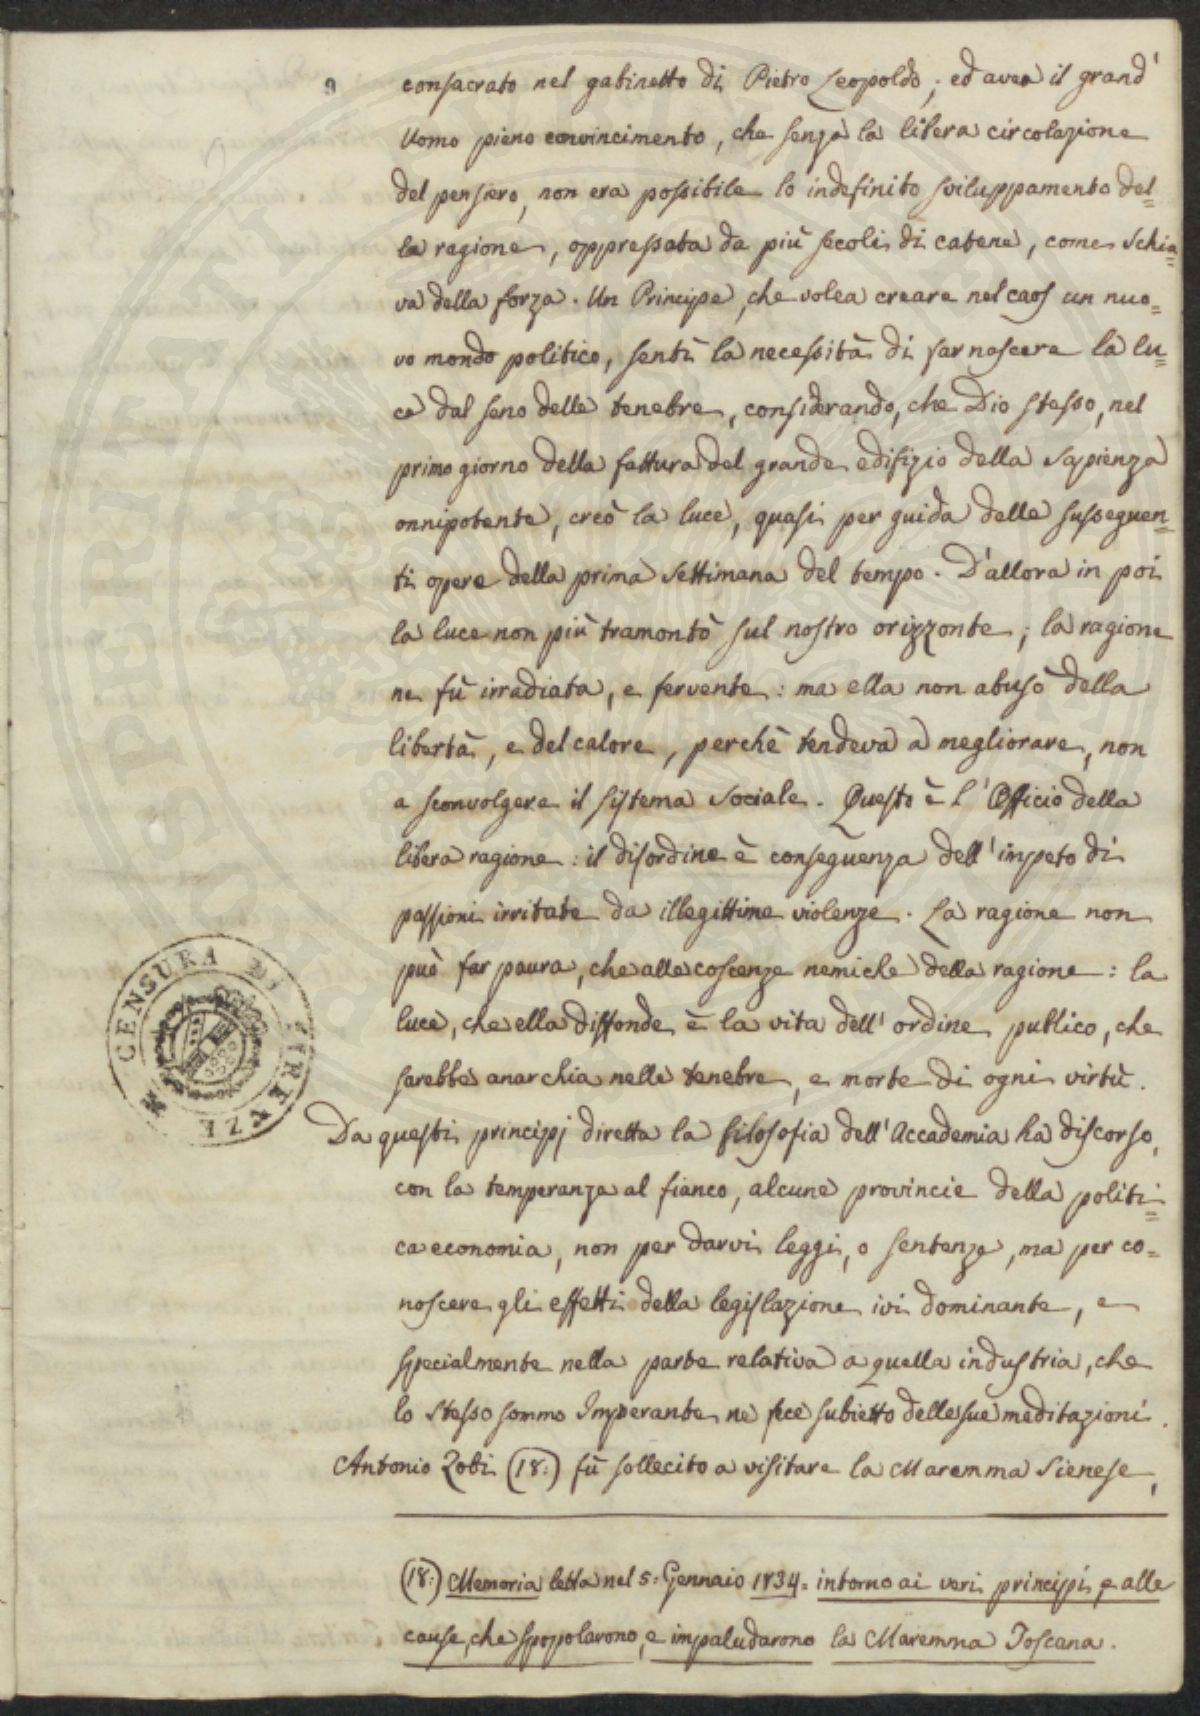 9
consacrato nel gabinetto di Pietro Leopoldo; ed avea il grand'
Uomo pieno convincimento, che senza la libera circolazione
del pensiero, non era possibile lo indefinito sviluppamento del=
la ragione, oppressata da più secoli di catene, come schia=
va della forza. Un Principe, che volea creare nel caos un nuo=
vo mondo politico, sentì la necessità di far nascere la lu=
ce dal seno delle tenebre, considerando, che Dio stesso, nel
primo giorno della fattura del grande edifizio della Sapienza
onnipotente, creò la luce, quasi per guida delle susseguen=
ti opere della prima settimana del tempo. D'allora in poi
la luce non più tramontò sul nostro orizzonte; la ragione
ne fù irradiata, e fervente: ma ella non abusò della
libertà, e del calore, perchè tendeva a megliorare, non
a sconvolgere il sistema sociale. Questo è l'Officio della
libera ragione: il disordine è conseguenza dell'impeto di
passioni irritate da illegittime violenze. La ragione non
può far paura, che alle coscenze nemiche della ragione: la
luce, che ella diffonde è la vita dell'ordine publico, che
sarebbe anarchia nelle tenebre, e morte di ogni virtù.
Da questi principj diretta la filosofia dell'Accademia ha discorso,
con la temperanza al fianco, alcune provincie della politi=
ca economia, non per darvi leggi, o sentenze, ma per co=
noscere gli effetti della legislazione ivi dominante, e
specialmente nella parte relativa a quella industria, che
lo stesso sommo Imperante ne fece subietto delle sue meditazioni.
Antonio Zobi (18:) fù sollecito a visitare la Maremma Sienese,
(18:) Memoria letta nel 5: Gennaio 1834= intorno ai veri principj, e alle
cause, che spopolarono, e impaludarono la Maremma Toscana.
CENSURA DI FIRENZE
SOSPES